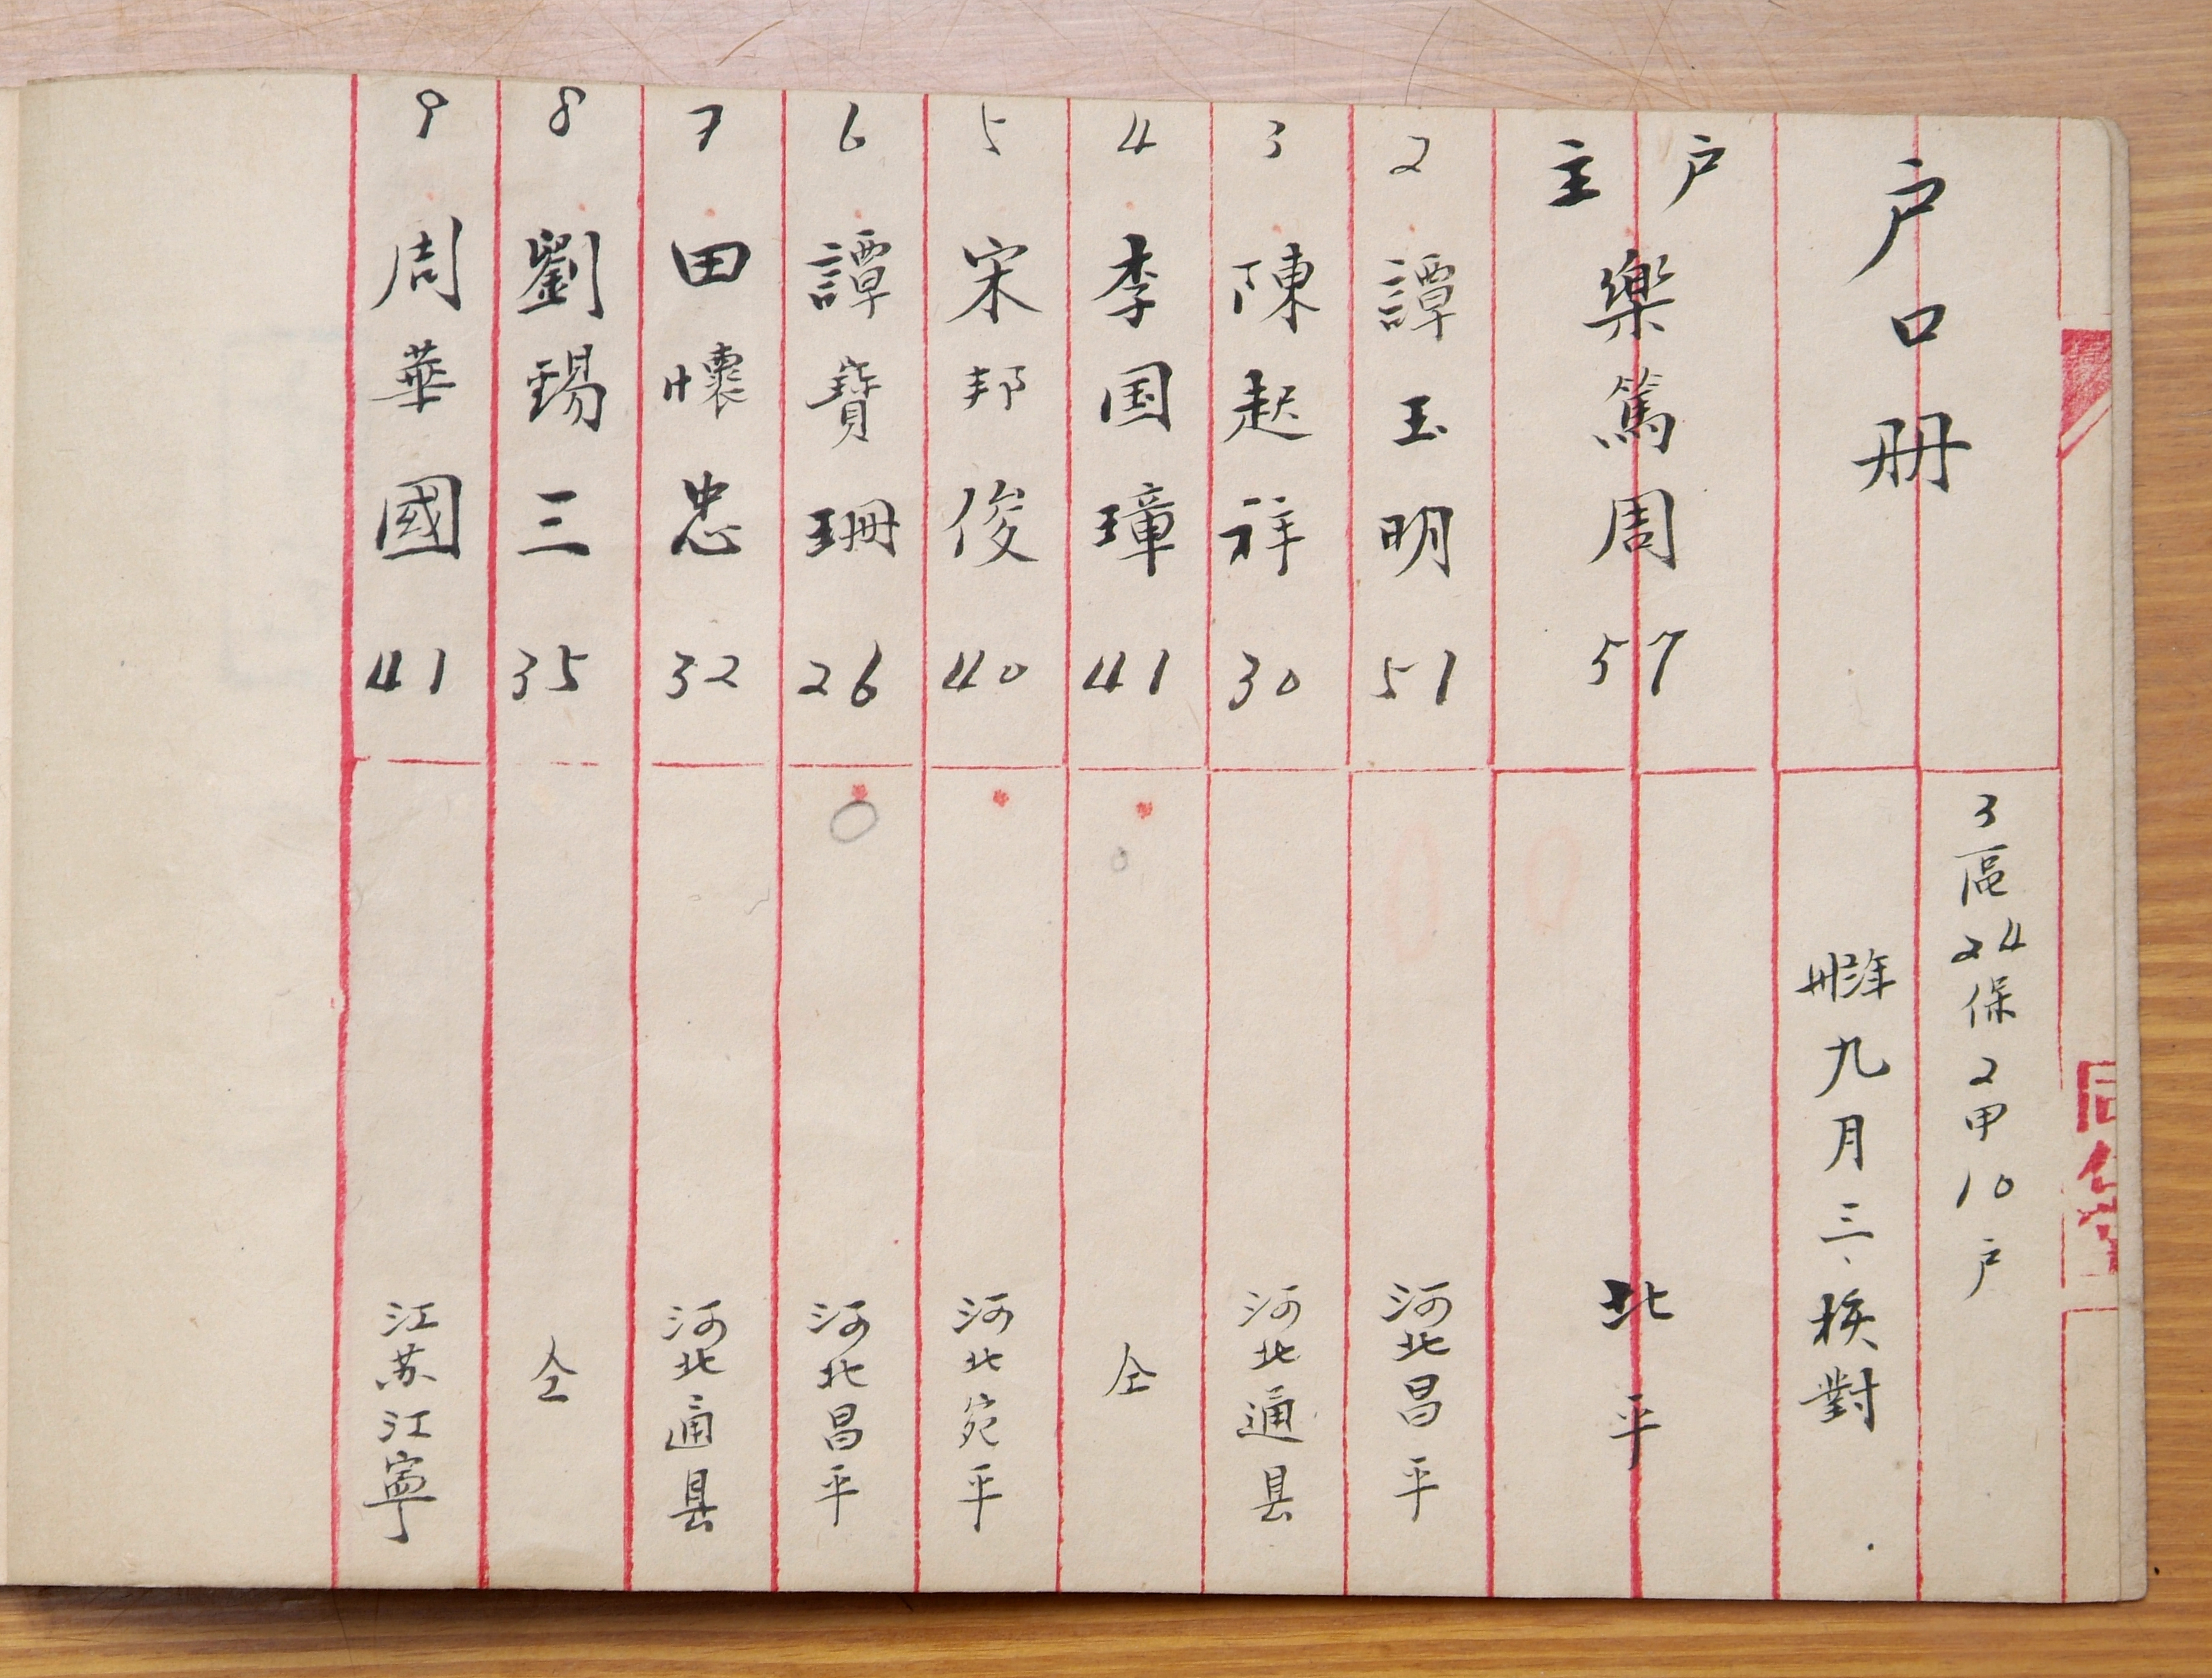 户口册
3區24保2甲10户
卅六年九月三、核對
户主 樂篤周 57 北平
2 譚玉明 51 河北昌平
3 陳起祥 30 河北通县
4 李国璋 41 仝
5 宋邦俊 40 河北宛平
6 譚寶珊 26 河北昌平
7 田懷忠 32 河北通县
8 劉錫三 35 仝
9 周華國 41 江苏江寧